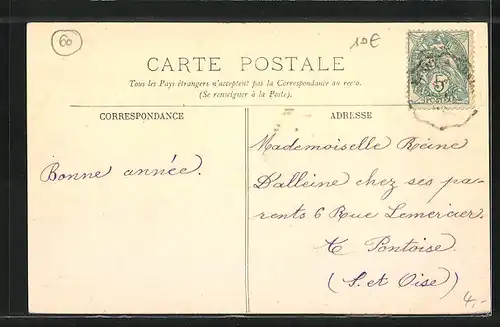 60
10€
CARTE POSTALE
Tous les Pays étrangers n'acceptent pas la Correspondance au recto.
(Se renseigner à la Poste).
CORRESPONDANCE
ADRESSE
Bonne année.
Mademoiselle Reine
Dalleine chez ses pa-
rents 6 Rue Lemercier.
à Pontoise.
(S. et Oise)
4,-
5